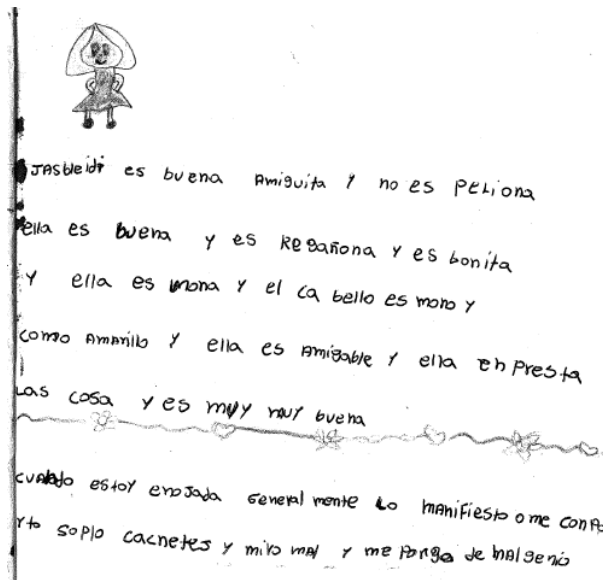 JASbleidi es buena Amiguita y no es peliona
ella es buena y es Regañona y es bonita
y ella es mona y el ca bello es mono y
como Amarillo y ella es Amigable y ella en presta
Las cosa y es muy muy buena
cuando estoy enojada generalmente Lo manifiesto o me
soplo cachetes y miro mal y me pongo de malgenio